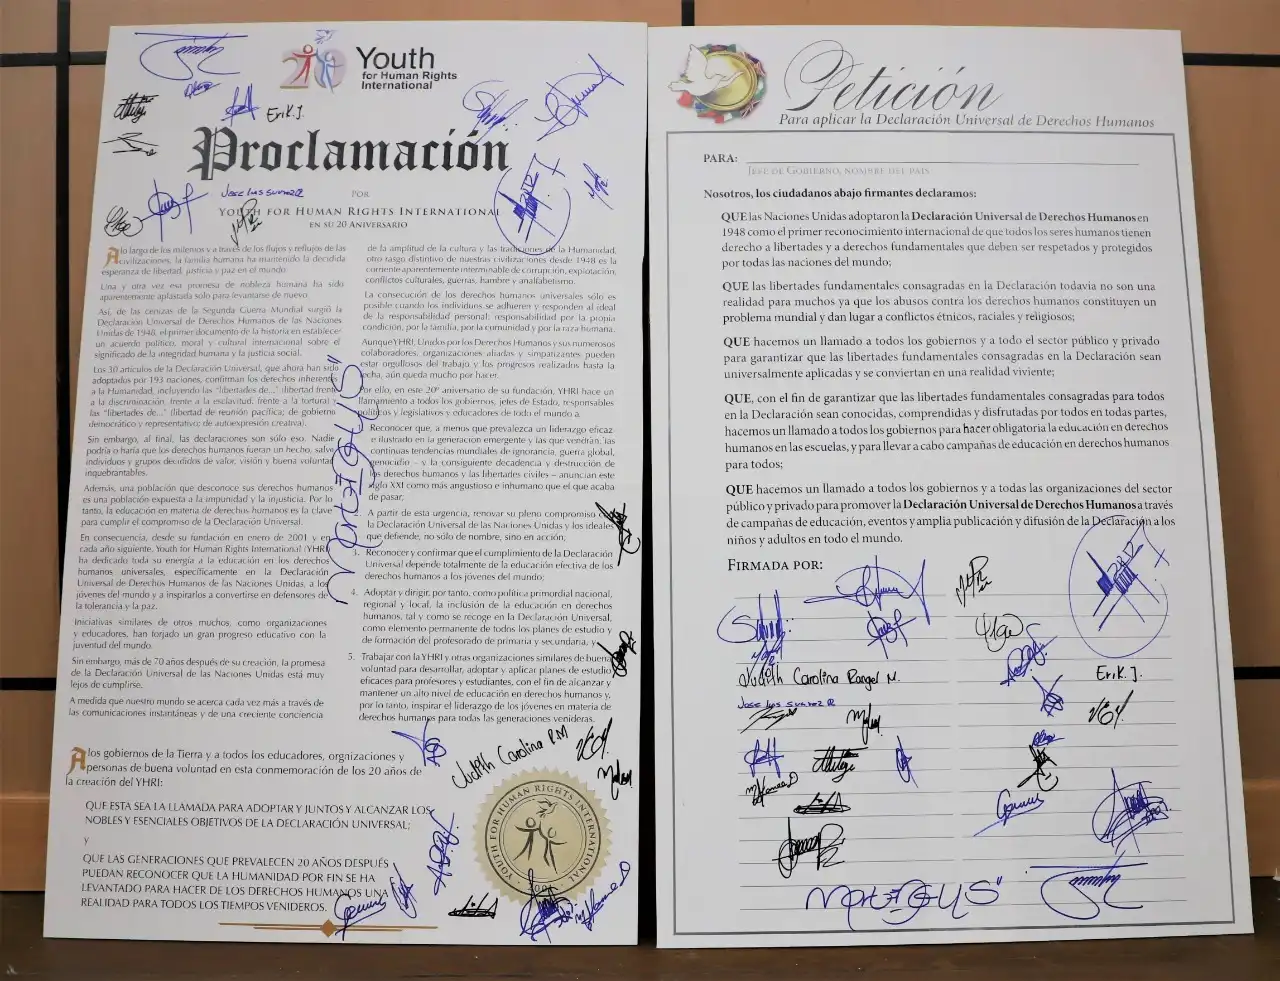 Youth
for Human Rights
International
Erik J.
Proclamación
Jose luis suarez R
POR
YOUTH FOR HUMAN RIGHTS INTERNATIONAL
EN SU 20 ANIVERSARIO
A lo largo de los milenios y a través de los flujos y reflujos de las
civilizaciones, la familia humana ha mantenido la decidida
esperanza de libertad, justicia y paz en el mundo.
Una y otra vez esa promesa de nobleza humana ha sido
aparentemente aplastada solo para levantarse de nuevo.
Así, de las cenizas de la Segunda Guerra Mundial surgió la
Declaración Universal de Derechos Humanos de las Naciones
Unidas de 1948, el primer documento de la historia en establecer
un acuerdo político, moral y cultural internacional sobre el
significado de la integridad humana y la justicia social.
Los 30 artículos de la Declaración Universal, que ahora han sido
adoptados por 193 naciones, confirman los derechos inherentes
a la Humanidad, incluyendo las "libertades de..." (libertad frente
a la discriminación, frente a la esclavitud, frente a la tortura) y
las "libertades de..." (libertad de reunión pacífica; de gobierno
democrático y representativo; de autoexpresión creativa).
Sin embargo, al final, las declaraciones son sólo eso. Nadie
podría o haría que los derechos humanos fueran un hecho, salvo
individuos y grupos decididos de valor, visión y buena voluntad
inquebrantables.
Además, una población que desconoce sus derechos humanos
es una población expuesta a la impunidad y la injusticia. Por lo
tanto, la educación en materia de derechos humanos es la clave
para cumplir el compromiso de la Declaración Universal.
En consecuencia, desde su fundación en enero de 2001 y en
cada año siguiente, Youth for Human Rights International (YHRI)
ha dedicado toda su energía a la educación en los derechos
humanos universales, específicamente en la Declaración
Universal de Derechos Humanos de las Naciones Unidas, a los
jóvenes del mundo y a inspirarlos a convertirse en defensores de
la tolerancia y la paz.
Iniciativas similares de otros muchos, como organizaciones
y educadores, han forjado un gran progreso educativo con la
juventud del mundo.
Sin embargo, más de 70 años después de su creación, la promesa
de la Declaración Universal de las Naciones Unidas está muy
lejos de cumplirse.
A medida que nuestro mundo se acerca cada vez más a través de
las comunicaciones instantáneas y de una creciente conciencia
de la amplitud de la cultura y las tradiciones de la Humanidad,
otro rasgo distintivo de nuestras civilizaciones desde 1948 es la
corriente aparentemente interminable de corrupción, explotación,
conflictos culturales, guerras, hambre y analfabetismo.
La consecución de los derechos humanos universales sólo es
posible cuando los individuos se adhieren y responden al ideal
de la responsabilidad personal: responsabilidad por la propia
condición, por la familia, por la comunidad y por la raza humana.
AunqueYHRI, Unidos por los Derechos Humanos y sus numerosos
colaboradores, organizaciones aliadas y simpatizantes pueden
estar orgullosos del trabajo y los progresos realizados hasta la
fecha, aún queda mucho por hacer.
Por ello, en este 20º aniversario de su fundación, YHRI hace un
llamamiento a todos los gobiernos, jefes de Estado, responsables
políticos y legislativos y educadores de todo el mundo a:
Reconocer que, a menos que prevalezca un liderazgo eficaz
e ilustrado en la generación emergente y las que vendrán, las
continuas tendencias mundiales de ignorancia, guerra global,
genocidio – y la consiguiente decadencia y destrucción de
los derechos humanos y las libertades civiles – anuncian este
siglo XXI como más angustioso e inhumano que el que acaba
de pasar;
2. A partir de esta urgencia, renovar su pleno compromiso con
la Declaración Universal de las Naciones Unidas y los ideales
que defiende, no sólo de nombre, sino en acción;
3. Reconocer y confirmar que el cumplimiento de la Declaración
Universal depende totalmente de la educación efectiva de los
derechos humanos a los jóvenes del mundo;
4. Adoptar y dirigir, por tanto, como política primordial nacional,
regional y local, la inclusión de la educación en derechos
humanos, tal y como se recoge en la Declaración Universal,
como elemento permanente de todos los planes de estudio y
de formación del profesorado de primaria y secundaria, y
5. Trabajar con la YHRI y otras organizaciones similares de buena
voluntad para desarrollar, adoptar y aplicar planes de estudio
eficaces para profesores y estudiantes, con el fin de alcanzar y
mantener un alto nivel de educación en derechos humanos y,
por lo tanto, inspirar el liderazgo de los jóvenes en materia de
derechos humanos para todas las generaciones venideras.
A los gobiernos de la Tierra y a todos los educadores, orgnizaciones y
personas de buena voluntad en esta conmemoración de los 20 años de
la creación del YHRI:
QUE ESTA SEA LA LLAMADA PARA ADOPTAR Y JUNTOS Y ALCANZAR LOS
NOBLES Y ESENCIALES OBJETIVOS DE LA DECLARACIÓN UNIVERSAL;
y
QUE LAS GENERACIONES QUE PREVALECEN 20 AÑOS DESPUÉS
PUEDAN RECONOCER QUE LA HUMANIDAD POR FIN SE HA
LEVANTADO PARA HACER DE LOS DERECHOS HUMANOS UNA
REALIDAD PARA TODOS LOS TIEMPOS VENIDEROS.
Judith Carolina R.M
YOUTH FOR HUMAN RIGHTS INTERNATIONAL
Petición
Para aplicar la Declaración Universal de Derechos Humanos
PARA:
JEFE DE GOBIERNO, NOMBRE DEL PAÍS
Nosotros, los ciudadanos abajo firmantes declaramos:
QUE las Naciones Unidas adoptaron la Declaración Universal de Derechos Humanos en
1948 como el primer reconocimiento internacional de que todos los seres humanos tienen
derecho a libertades y a derechos fundamentales que deben ser respetados y protegidos
por todas las naciones del mundo;
QUE las libertades fundamentales consagradas en la Declaración todavía no son una
realidad para muchos ya que los abusos contra los derechos humanos constituyen un
problema mundial y dan lugar a conflictos étnicos, raciales y religiosos;
QUE hacemos un llamado a todos los gobiernos y a todo el sector público y privado
para garantizar que las libertades fundamentales consagradas en la Declaración sean
universalmente aplicadas y se conviertan en una realidad viviente;
QUE, con el fin de garantizar que las libertades fundamentales consagradas para todos
en la Declaración sean conocidas, comprendidas y disfrutadas por todos en todas partes,
hacemos un llamado a todos los gobiernos para hacer obligatoria la educación en derechos
humanos en las escuelas, y para llevar a cabo campañas de educación en derechos humanos
para todos;
QUE hacemos un llamado a todos los gobiernos y a todas las organizaciones del sector
público y privado para promover la Declaración Universal de Derechos Humanos a través
de campañas de educación, eventos y amplia publicación y difusión de la Declaración a los
niños y adultos en todo el mundo.
FIRMADA POR:
Judith Carolina Rangel M.
Erik J.
Jose luis suarez R